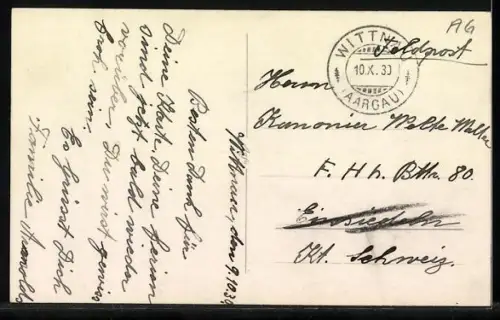 AG
Feldpost
WITTNAU
10.X.39
(AARGAU)
Herrn
Kanonier Welte Walter
F. Hb. Bttr. 80.
Einsiedeln
Kt. Schwyz.
Wittnau, den 9.10.39
Besten Dank für
Deine Karte. Deine
sind jetzt bald wieder
vorüber, Du wirst gewiss
froh sein.
Es grüsst Dich
Familie